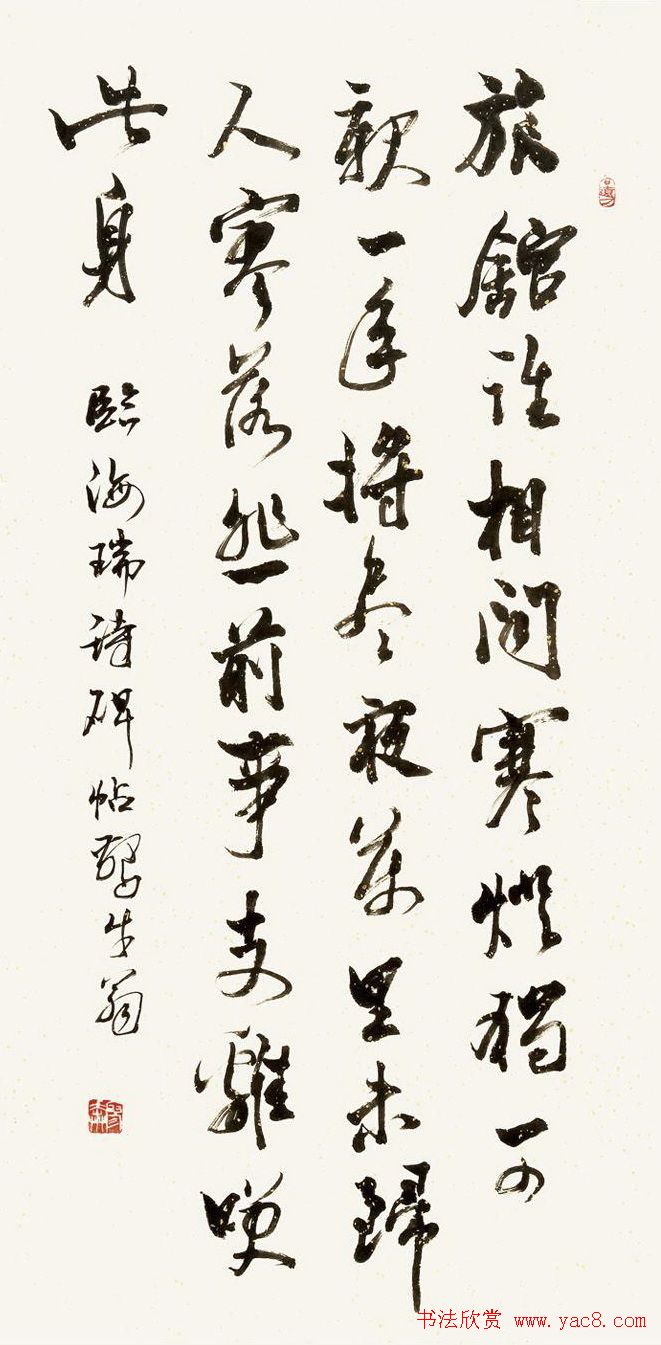 旅館誰相問寒燈獨可
親一年將盡夜萬里未歸
人寥落悲前事支離咲
此身 臨海瑞詩碑帖 牛翁
书法欣赏 www.yac8.com